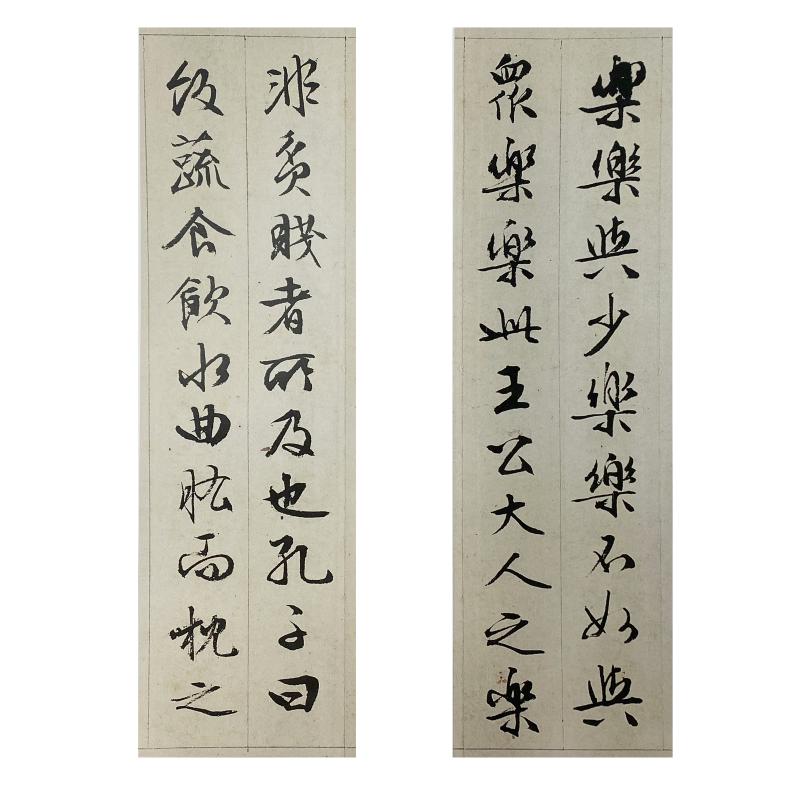 樂樂與少樂樂不如與
衆樂樂此王公大人之樂
非貧賤者所及也孔子曰
飯蔬食飲水曲肱而枕之